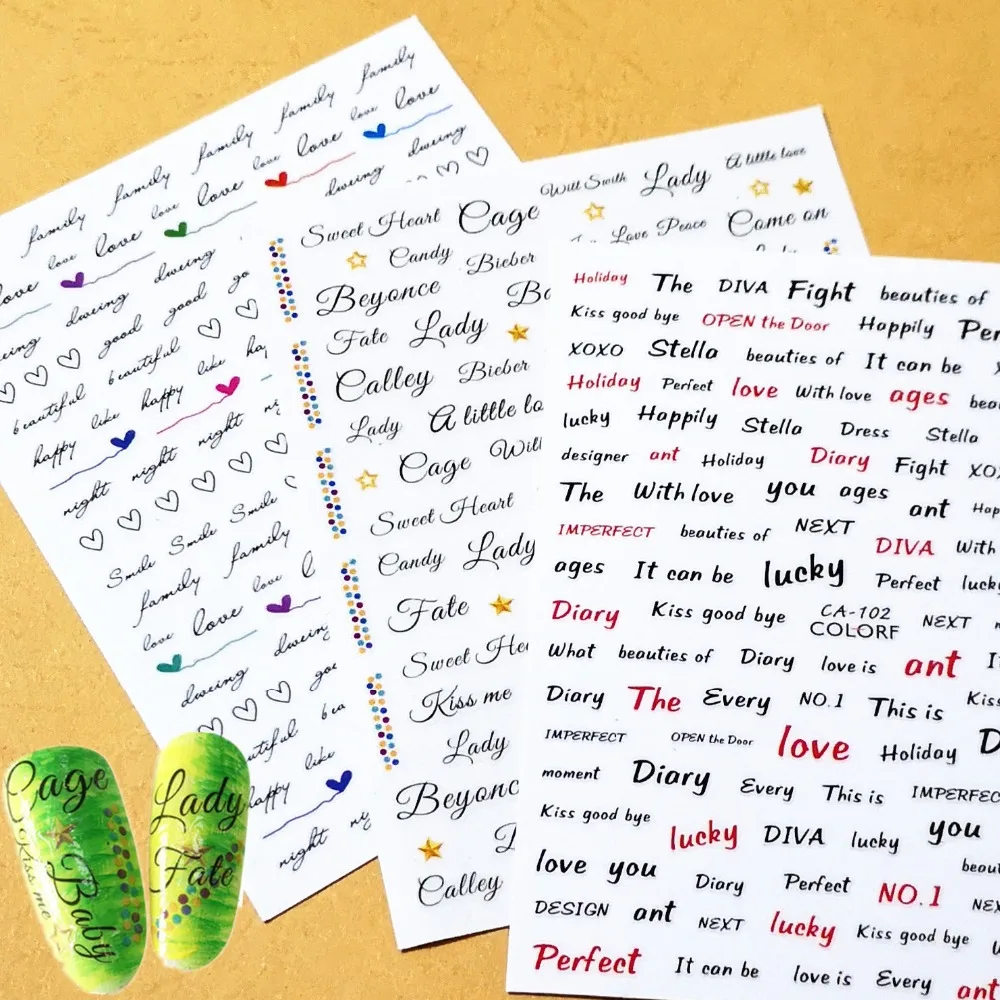 family family family family family
love love love love love love
dweing dweing dweing dweing
good good go
beautiful beautiful beautiful
happy like happy like ha
night night night
Smile Smile Smile
family family
love love love
dweing dweing
happy like
night
Will Smith Lady A little love
Sweet Heart Cage Love Peace Come on
Candy Bieber
Beyonce
Fate Lady
Calley Bieber
Lady A little lo
Cage Will
Sweet Heart
Candy Lady
Fate
Sweet He
Kiss me
Lady
Beyonc
Calley
Holiday The DIVA Fight beauties of
Kiss good bye OPEN the Door Happily Per
XOXO Stella beauties of It can be
Holiday Perfect love With love ages beau
lucky Happily Stella Dress Stella
designer ant Holiday Diary Fight XOX
The With love you ages ant Hap
IMPERFECT beauties of NEXT DIVA With
ages It can be lucky Perfect luck
Diary Kiss good bye CA-102 COLORF NEXT
What beauties of Diary love is ant It
Diary The Every NO.1 This is Kiss
IMPERFECT OPEN the Door love Holiday D
moment Diary Every This is IMPERFEC
Kiss good bye lucky DIVA lucky you
love you Diary Perfect NO.1 NEX
DESIGN ant NEXT lucky Kiss good bye
Perfect It can be love is Every ant
Cage
Kiss me
Baby
Lady
Fate